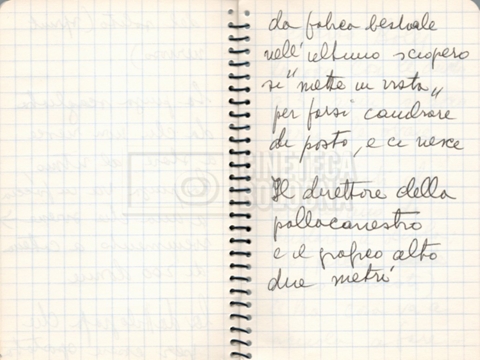 da fatica bestiale
nell'ultimo sciopero
si "mette in vista"
per farsi cambiare
di posto, e ci riesce
CINETECA
Il direttore della
pallacanestro
e il grafico alto
due metri